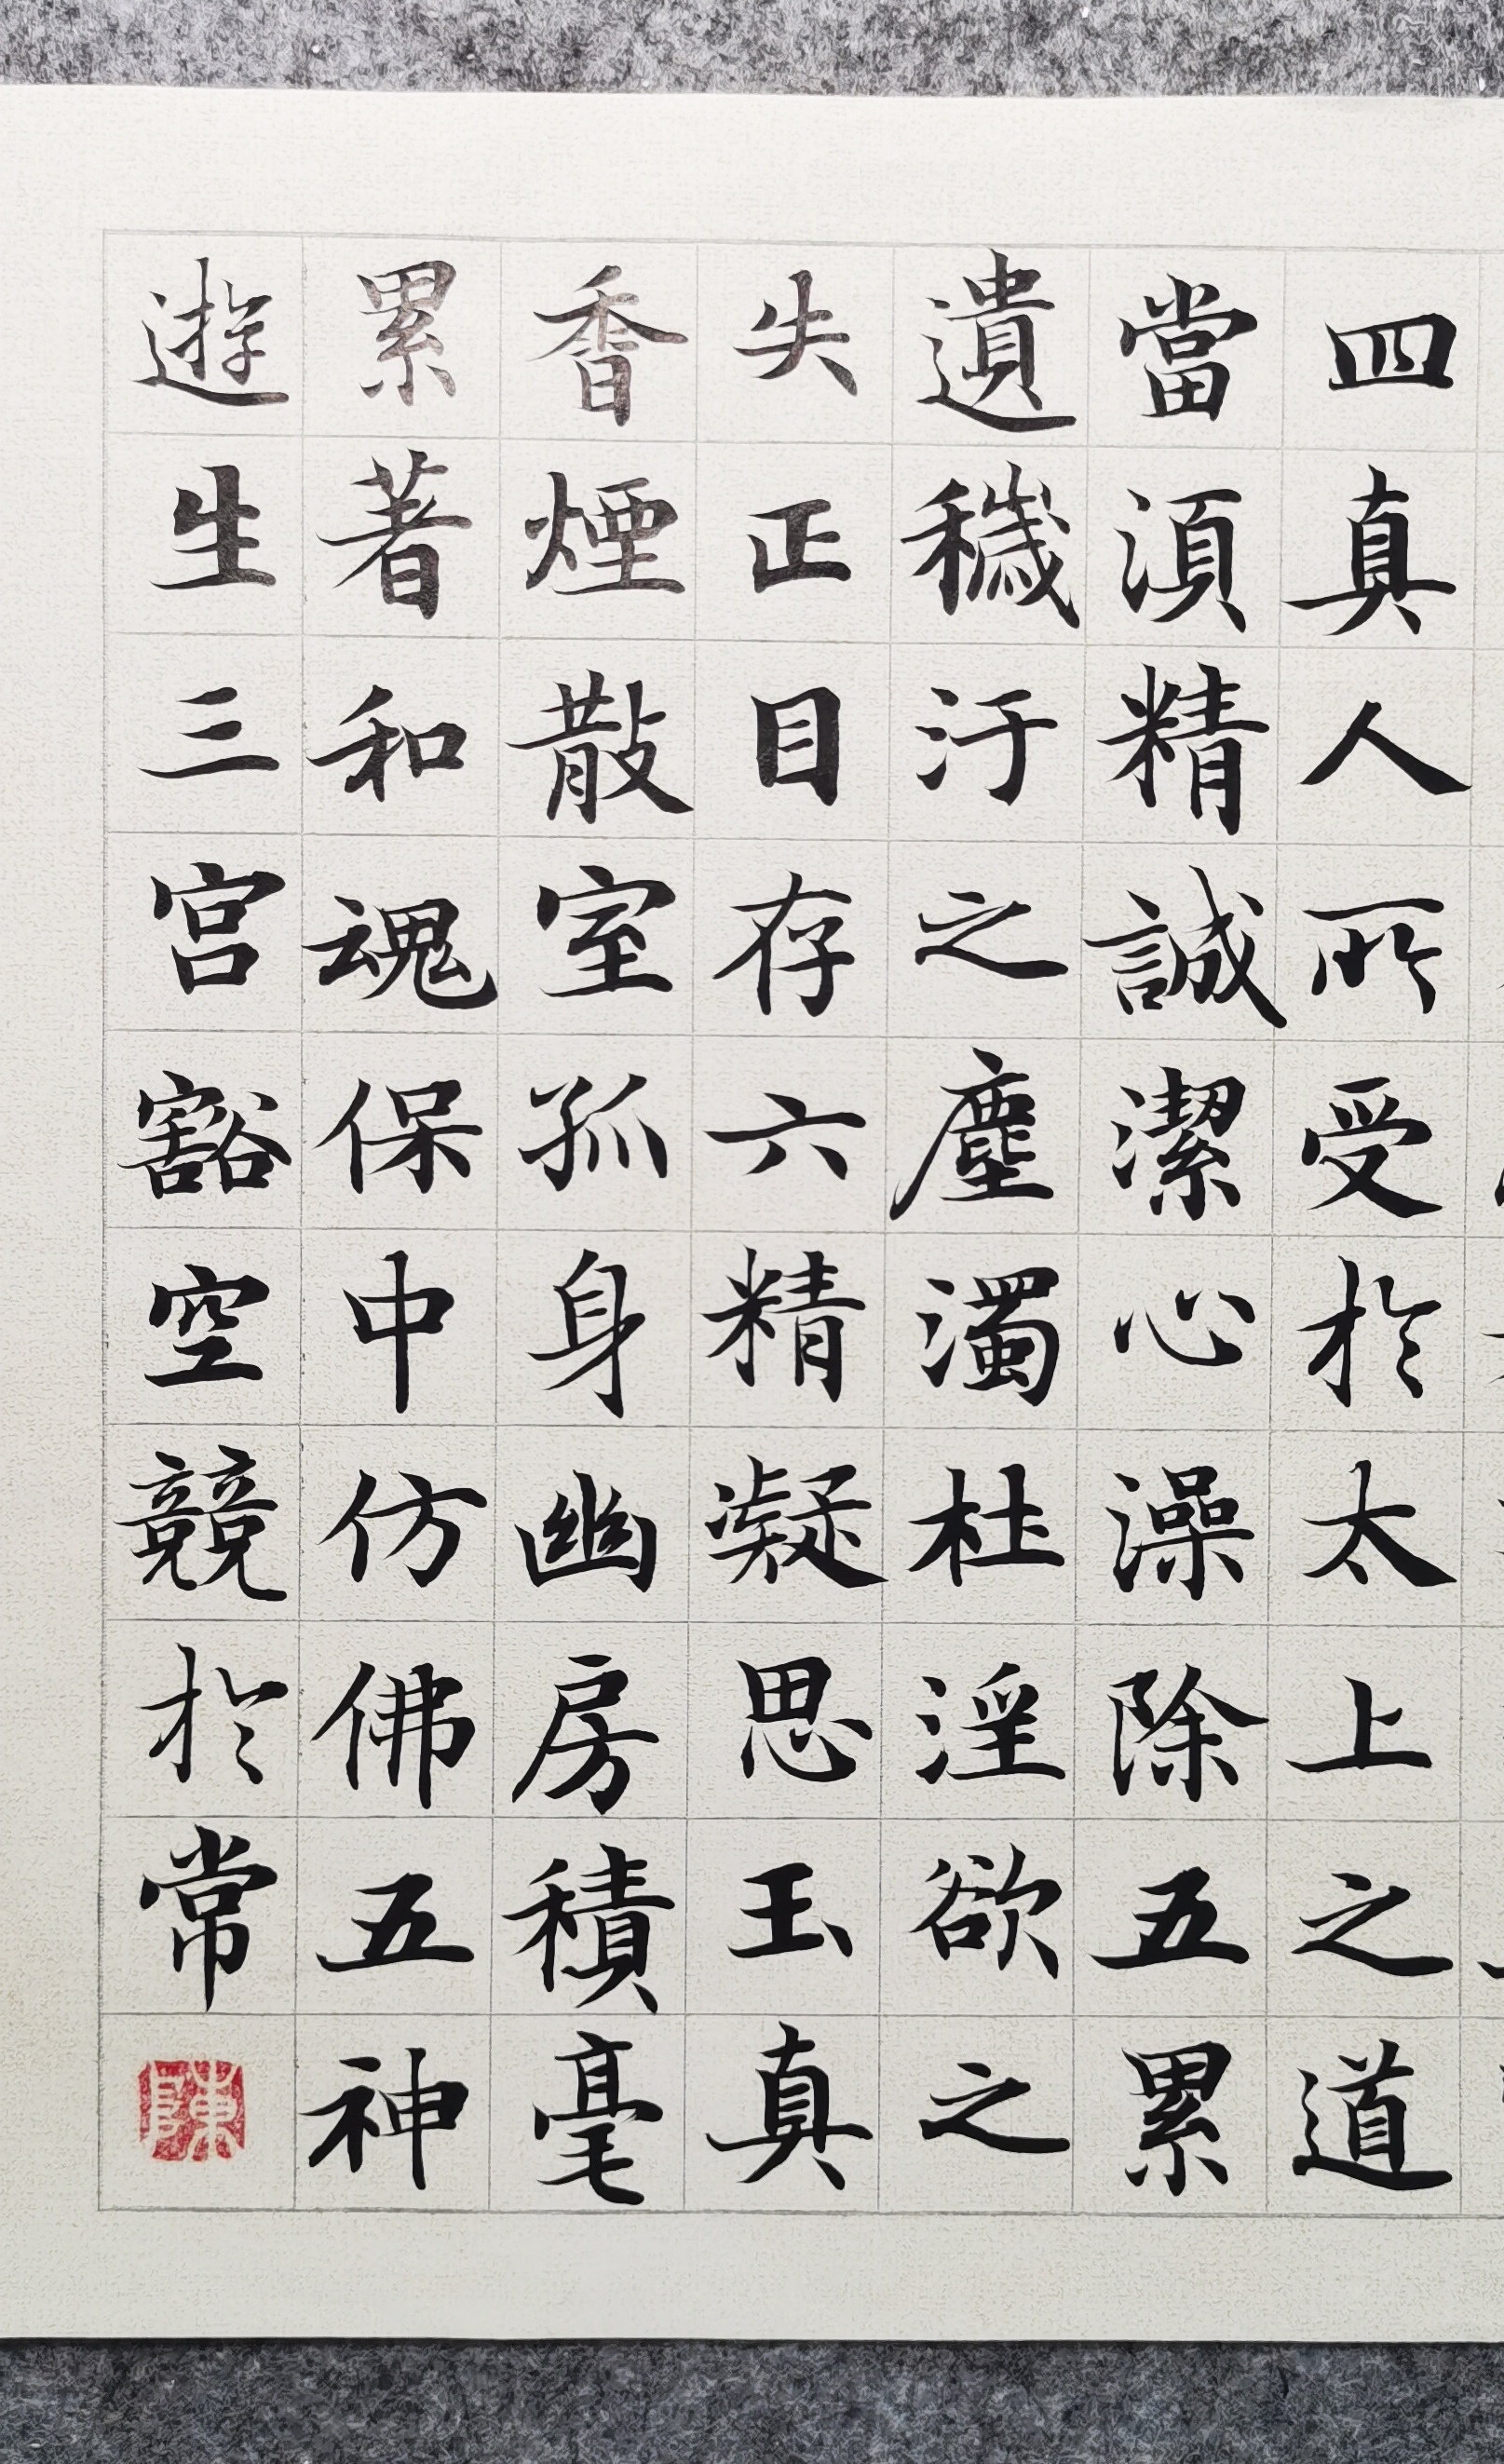 四真人所受於太上之道
當須精誠潔心澡除五累
遺穢汙之塵濁杜淫欲之
失正目存六精凝思玉真
香煙散室孤身幽房積毫
累著和魂保中仿佛五神
遊生三宮豁空競於常
陳